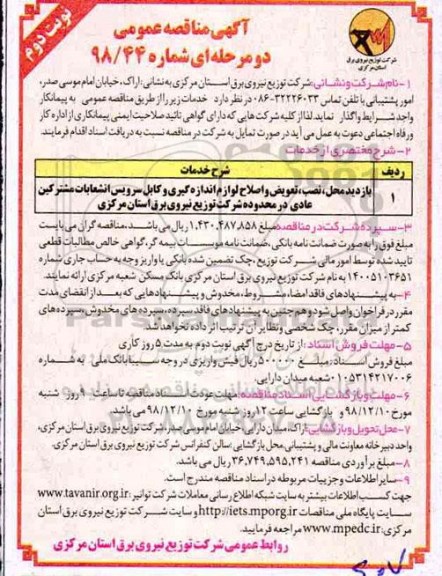 نوبت دوم
آگهی مناقصه عمومی
دو مرحله ای شماره ۹۸/۴۴
شرکت توزیع نیروی برق
استان مرکزی
۱-نام شرکت و نشانی: شرکت توزیع نیروی برق استان مرکزی به نشانی: اراک، خیابان امام موسی صدر،
امور پشتیبانی با تلفن تماس ۳۲۲۲۶۰۳۳-۰۸۶ در نظر دارد خدمات زیر را از طریق مناقصه عمومی به پیمانکار
واجد شرایط واگذار نماید. لذا از کلیه شرکت هایی که دارای گواهی تائید صلاحیت ایمنی پیمانکاری از اداره کار
و رفاه اجتماعی دعوت به عمل می آید در صورت تمایل به شرکت در مناقصه نسبت به دریافت اسناد اقدام فرمایند.
۲-شرح مختصری از خدمات
ردیف شرح خدمات
۱ بازدید محل، نصب، تعویض و اصلاح لوازم اندازه گیری و کابل سرویس انشعابات مشترکین
عادی در محدوده شرکت توزیع نیروی برق استان مرکزی
۳-سپرده شرکت در مناقصه مبلغ ۱,۴۳۰,۴۸۷,۸۵۸ ریال می باشد، مناقصه گران می بایست
مبلغ فوق را به صورت ضمانت نامه بانکی، ضمانت نامه موسسات بیمه گر، گواهی خالص مطالبات قطعی
تایید شده توسط امور مالی شرکت توزیع، چک تضمین شده بانکی یا واریز وجه به حساب جاری شماره
۱۴۰۰۵۱۰۳۶۵۱ به نام شرکت توزیع نیروی برق استان مرکزی بانک مسکن شعبه مرکزی ارائه نمایند.
۴-به پیشنهادهای فاقد امضا، مشروط، مخدوش و پیشنهادهایی که بعد از انقضای مدت
مقرر در فراخوان واصل شود و هم چنین به پیشنهادهای فاقد سپرده، سپرده های مخدوش، سپرده های
کمتر از میزان مقرر، چک شخصی و نظایر آن ترتیب اثر داده نخواهد شد.
۵-مهلت فروش اسناد: از تاریخ درج آگهی نوبت دوم به مدت ۵ روز کاری
مبلغ فروش اسناد: مبلغ ۵۰۰۰۰۰ ریال فیش واریزی در وجه سیبا بانک ملی به شماره
۰۱۰۵۳۱۴۲۱۷۰۰۶ شعبه میدان دارایی.
۶-مهلت و بازگشایی اسناد مناقصه: مهلت عودت اسناد مناقصه تا ساعت ۱۰ روز شنبه
مورخ ۹۸/۱۲/۱۰ و بازگشایی ساعت ۱۲ روز شنبه مورخ ۹۸/۱۲/۱۰ می باشد.
۷-محل تحویل و بازگشایی: اراک، میدان دارایی، خیابان امام موسی صدر، شرکت توزیع نیروی برق استان مرکزی،
واحد دبیرخانه معاونت مالی و پشتیبانی، محل بازگشایی: سالن کنفرانس شرکت توزیع نیروی برق استان مرکزی.
۸-مبلغ برآوردی مناقصه ۳۶,۷۴۹,۵۹۵,۲۴۱ ریال می باشد.
۹-سایر اطلاعات و جزییات مربوطه در اسناد مناقصه مندرج است.
جهت کسب اطلاعات بیشتر به سایت شبکه اطلاع رسانی معاملات شرکت توانیر: www.tavanir.org.ir
سایت پایگاه ملی مناقصات http://iets.mporg.ir و سایت شرکت توزیع نیروی برق استان
مرکزی: www.mpedc.ir مراجعه فرمایید.
روابط عمومی شرکت توزیع نیروی برق استان مرکزی